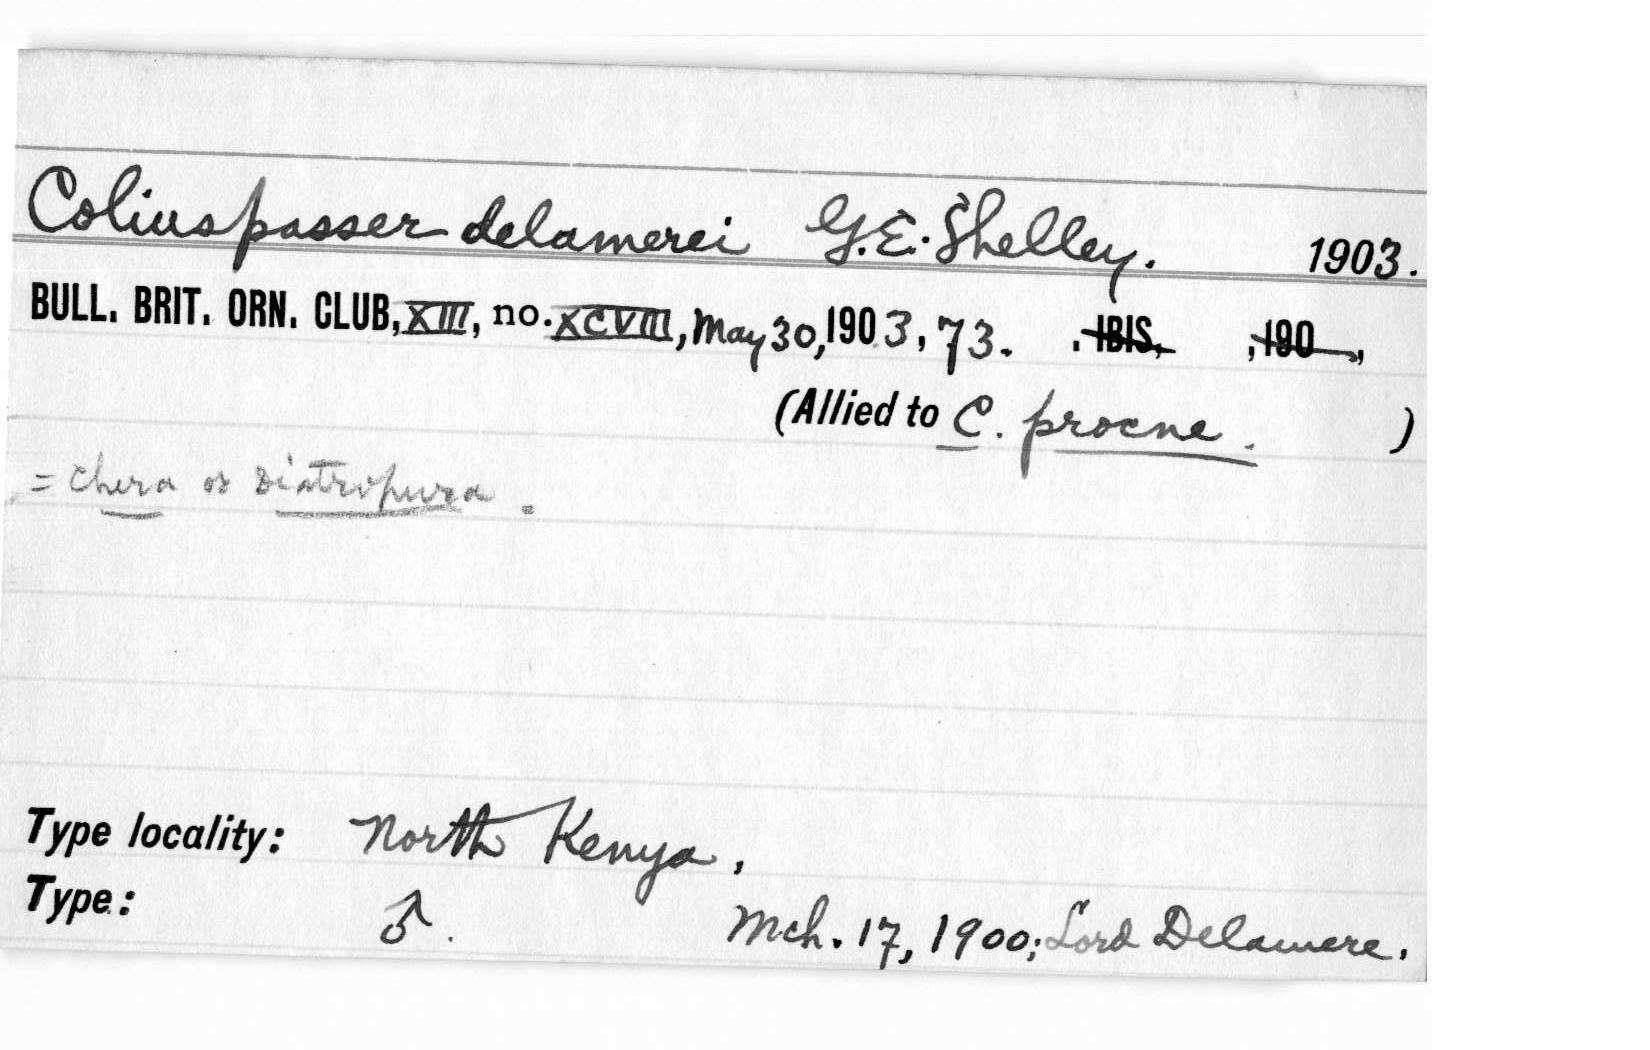 Coliuspasser delamerei G.E. Shelley. 1903.
BULL. BRIT. ORN. CLUB, XIII, no. XCVIII, May 30, 1903, 73. . IBIS, , 190 ,
(Allied to C. procne. )
= Chera or Diatropura.
Type locality: North Kenya,
Type: ♂. Mch. 17, 1900; Lord Delamere.